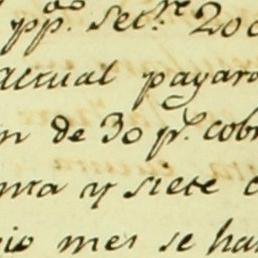 pp.ᵃᵒ Sec.ʳᵉ 200
actual pagara
n de 30 p.ˢ cobr
nta y siete c
cio mes se ha